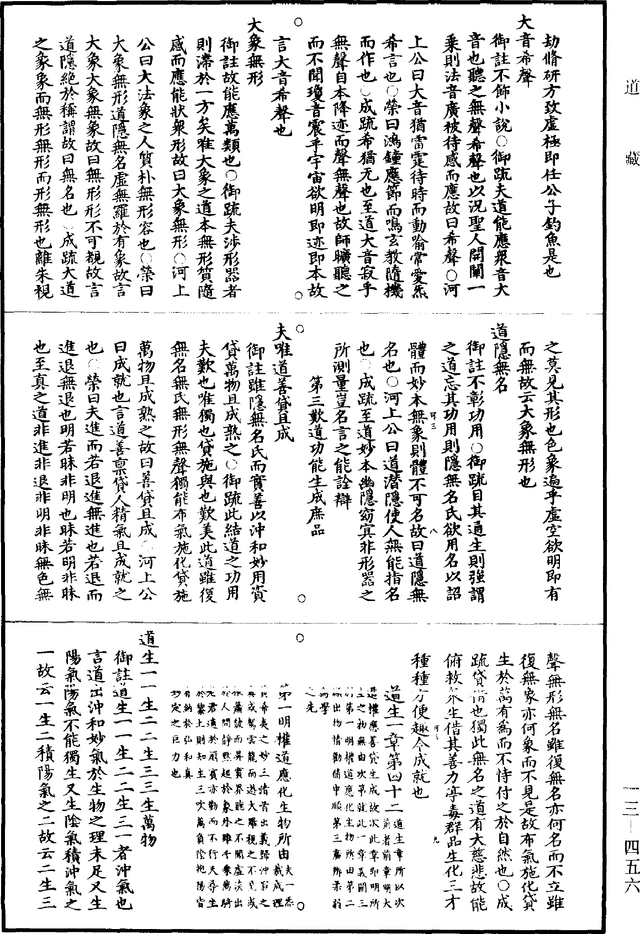 道藏
劫脩研方致虛極即任公子釣魚是也
大音希聲
御註不飾小說○御疏夫道能應衆音大
音也聽之無聲希聲也以況聖人開闡一
乘則法音廣被待感而應故曰希聲○河
上公曰大音猶雷霆待時而動喻常愛炁
希言也○榮曰鴻鐘應節而鳴玄教隨機
而作也○成疏希猶无也至道大音寂乎
無聲自本降迹而聲無聲也故師曠聽之
而不聞瓊音震乎宇宙欲明即迹即本故
言大音希聲也
大象無形
御註故能應萬類也○御疏夫涉形器者
則滯於一方矣唯大象之道本無形質隨
感而應能狀衆形故曰大象無形○河上
公曰大法象之人質朴無形容也○榮曰
大象無形道隱無名虛無羅於有象故言
大象大象無象故曰無形形不可覩故言
道隱絕於稱謂故曰無名也○成疏大道
之象象而無形無形而形無形也離朱視
之莫見其形也色象遍乎虛空欲明即有
而無故云大象無形也
道隱無名
御註不彰功用○御疏目其通生則強謂
之道忘其功用則隱無名氏欲用名以詔
體而妙本無象則體不可名故曰道隱無
名也○河上公曰道潛隱使人無能指名
也○成疏至道妙本幽隱窈冥非形器之
所測量豈名言之能詮辯
第三歎道功能生成庶品
夫唯道善貸且成
御註雖隱無名氏而實善以沖和妙用資
貸萬物且成熟之○御疏此結道之功用
夫歎也唯獨也貸施與也歎美此道雖復
無名無氏無形無聲獨能布氣施化貸施
萬物且成熟之故曰善貸且成○河上公
曰成就也言道善稟貸人精氣且成就之
也○榮曰夫進而若退進無進也若退而
進退無退也明若昧非明也昧若明非昧
也至真之道非進非退非明非昧無色無
聲無形無名雖復無名亦何名而不立雖
復無象亦何象而不見是故布氣施化貸
生於萬有爲而不恃付之於自然也○成
疏貸借也獨此無名之道有大慈悲故能
俯救衆生借其善力亭毒群品生化三才
種種方便趣令成就也
道生一章第四十二
第一明權道應化生物所由
道生一一生二二生三三生萬物
御註道生一一生二二生三一者沖氣也
言道出沖和妙氣於生物之理未足又生
陽氣陽氣不能獨生又生陰氣積沖氣之
一故云一生二積陽氣之二故云二生三
一三—四五六